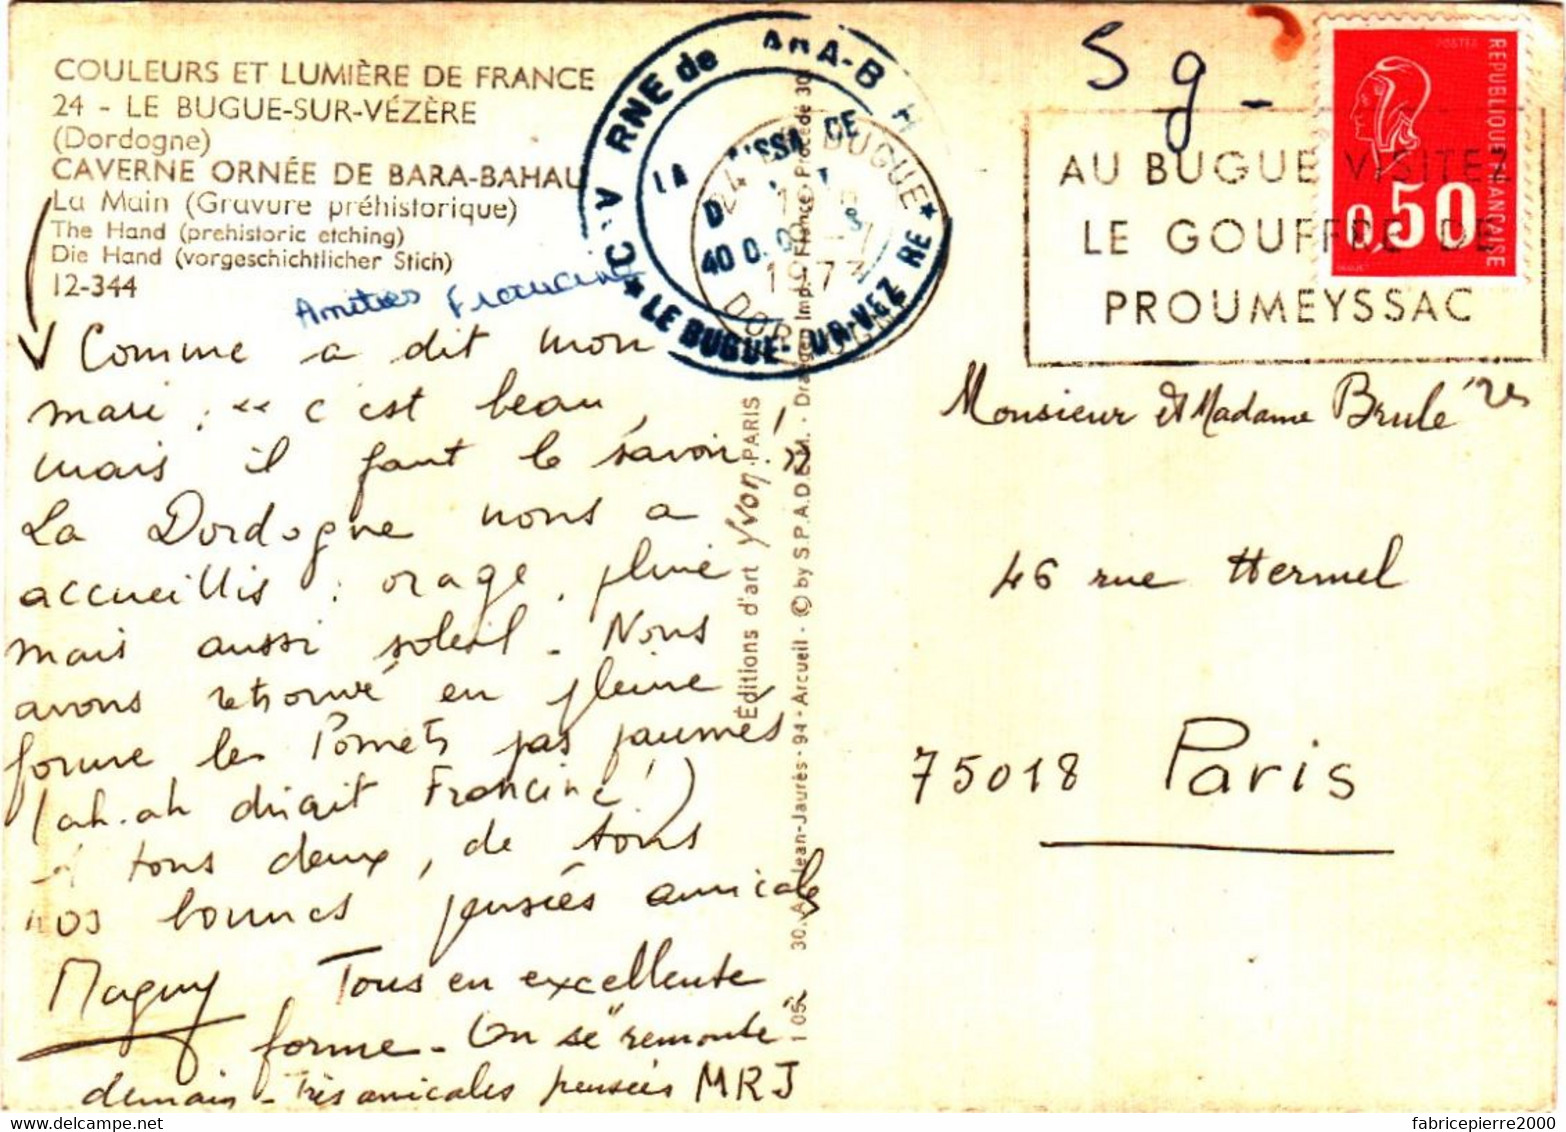 COULEURS ET LUMIÈRE DE FRANCE
24 - LE BUGUE-SUR-VÉZÈRE
(Dordogne)
CAVERNE ORNÉE DE BARA-BAHAU
La Main (Gravure préhistorique)
The Hand (prehistoric etching)
Die Hand (vorgeschichtlicher Stich)
12-344
Amitiés Francine
Comme a dit mon
mari : "c'est beau,
mais il faut le savoir!"
La Dordogne nous a
accueillis : orage, pluie
mais aussi soleil - Nous
avons retrouvé en pleine
forme les Pomets pas paumés
(ah.ah dirait Francine!)
A tous deux, de tous
nos bonnes pensées amicales
Maguy
Tous en excellente
forme - On se "remonte
demain - Très amicales pensées MRJ
Éditions d'art Yvon PARIS
30, A. Jean-Jaurès - 94 - Arcueil - © by S.P.A.D.E.M. - Imp. France - Procédé 30
RNE de
LE BUGUE
40 0
24 BUGUE
DORDOGNE
5 g -
AU BUGUE VISITEZ
LE GOUFFRE DE
PROUMEYSSAC
POSTES
REPUBLIQUE FRANÇAISE
0,50
Monsieur et Madame Brulé
46 rue Hermel
75018 Paris
fabricepierre2000